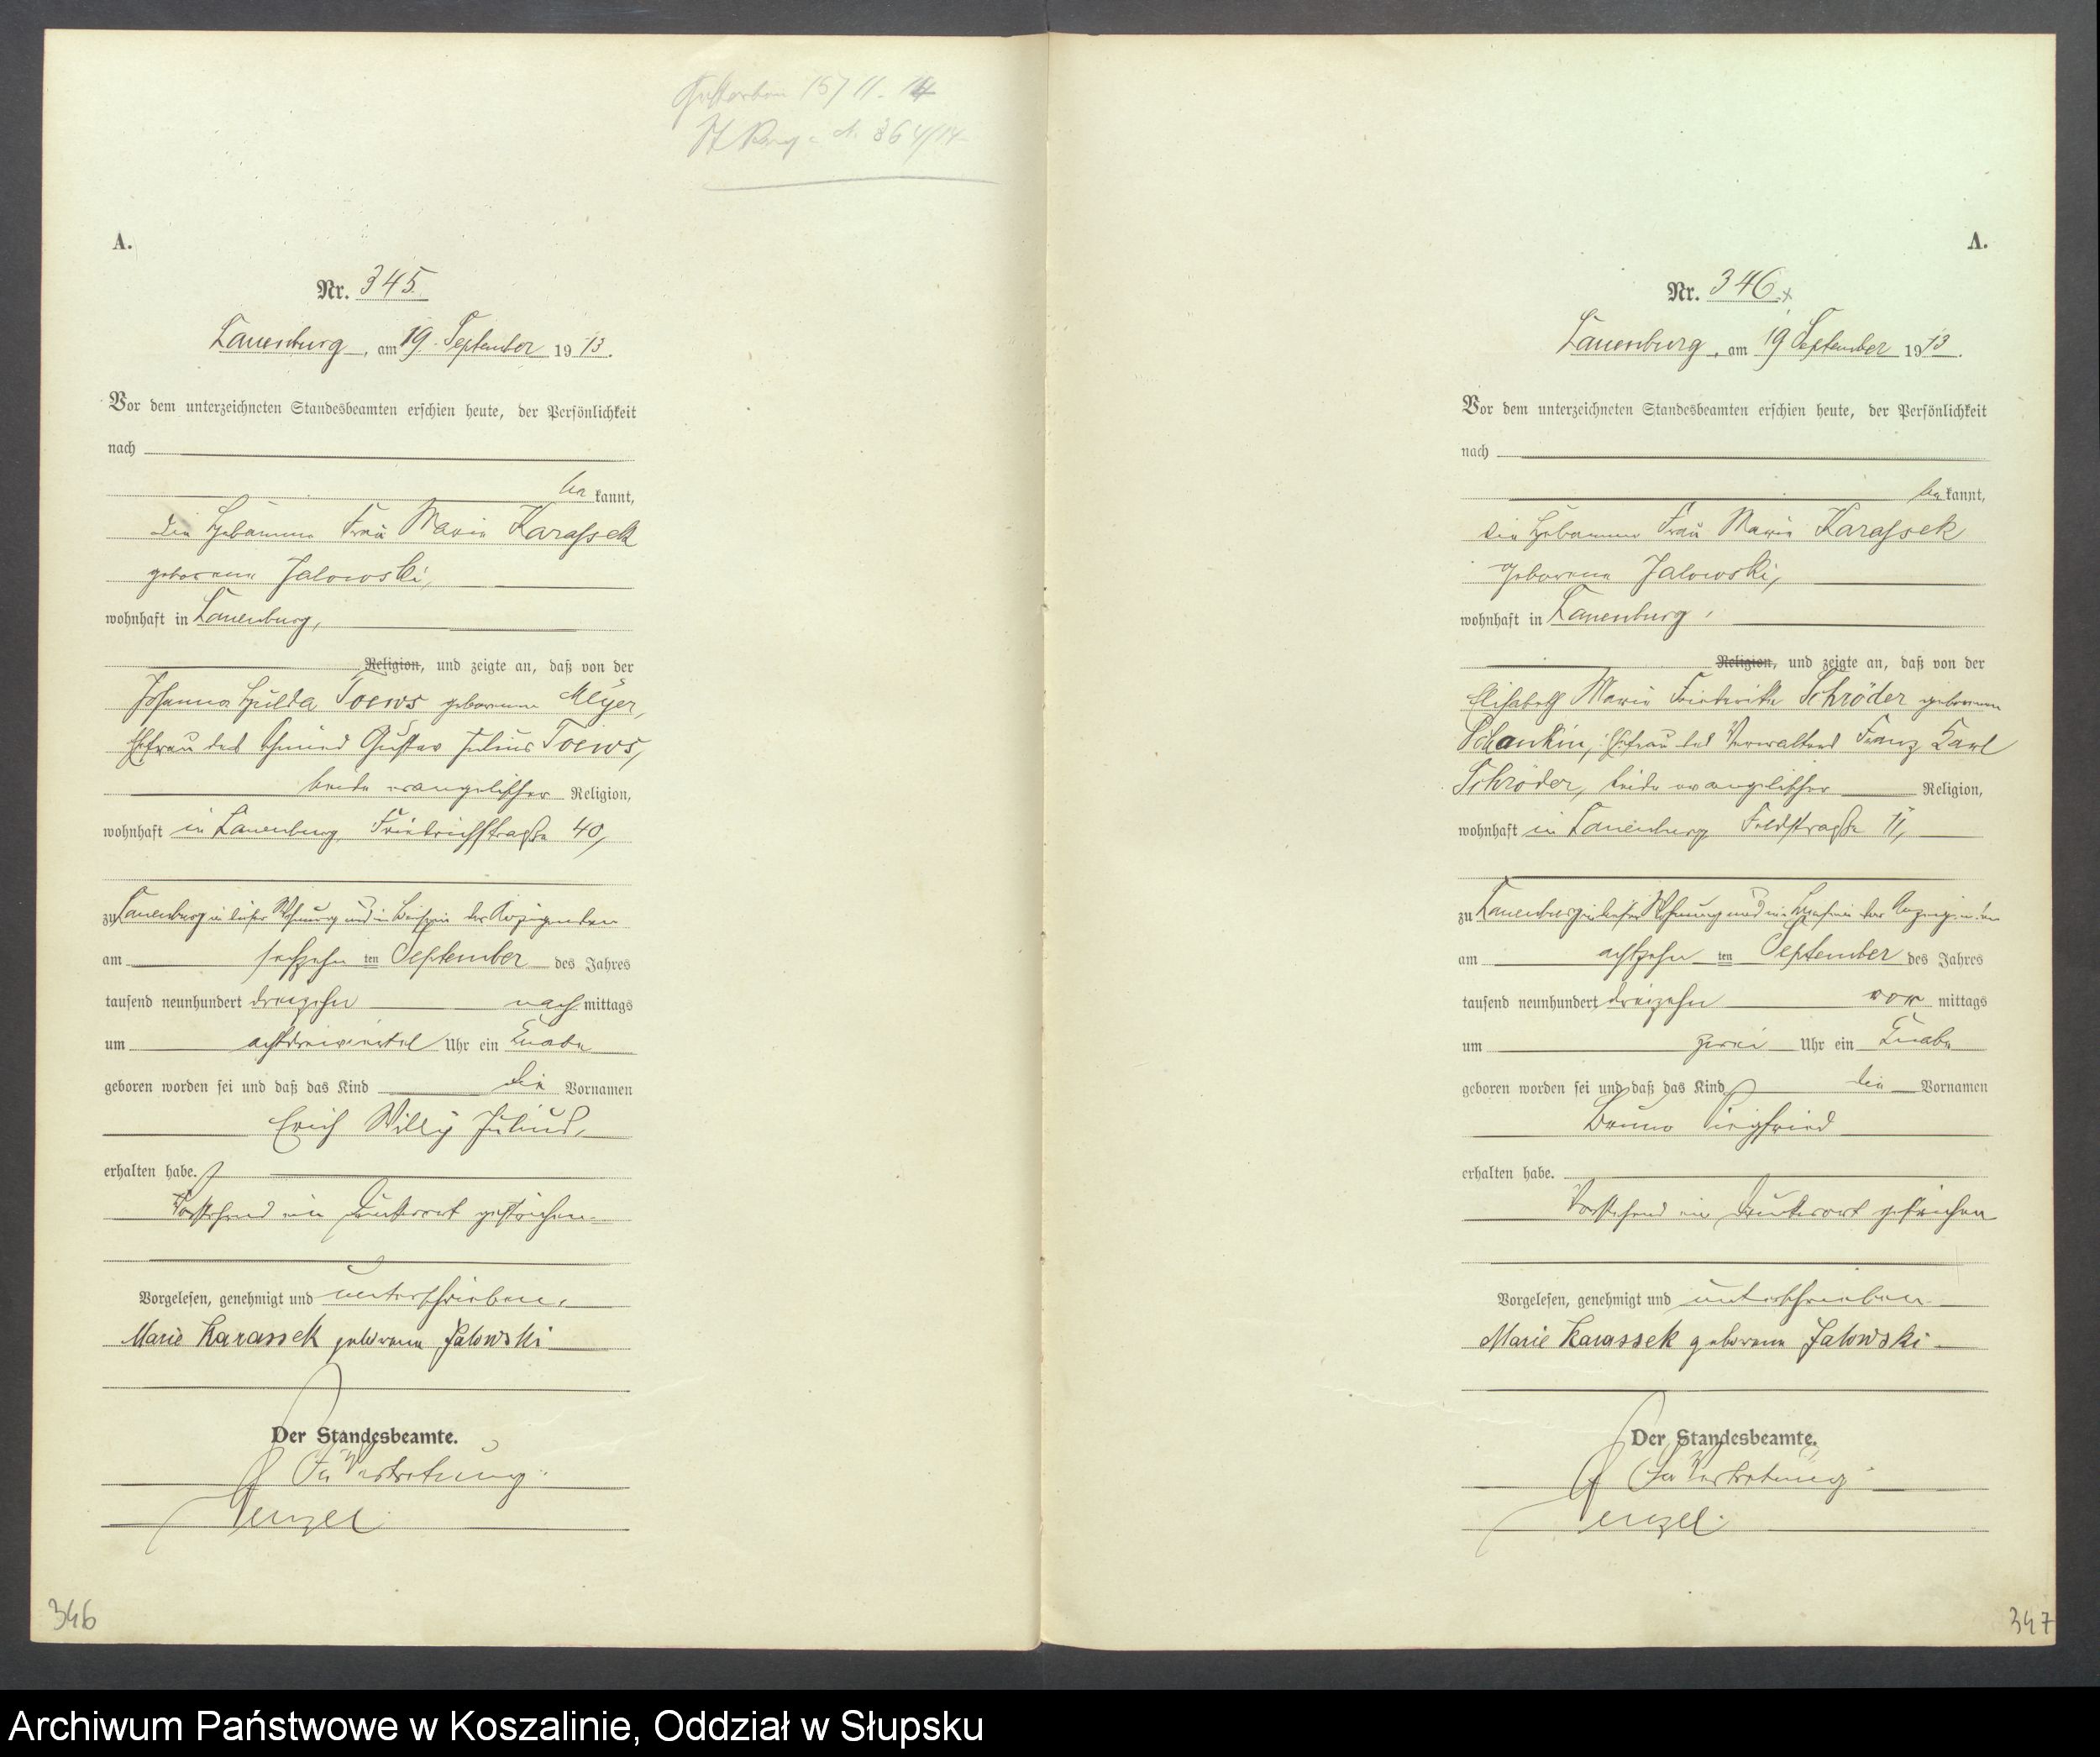 Gestorben 15/11. 14
St. Reg. N. 364/14
A.
Nr. 345.
Lauenburg, am 19. September 1913.
Vor dem unterzeichneten Standesbeamten erschien heute, der Persönlichkeit
nach
be kannt,
die Hebamme Frau Marie Karassek
geborene Jalowski,
wohnhaft in Lauenburg,
Religion, und zeigte an, daß von der
Johanna Hulda Toews geborenen Meyer,
Ehefrau des Gustav Julius Toews,
beide evangelischer Religion,
wohnhaft in Lauenburg Friedrichstraße 40,
zu Lauenburg in dieser Wohnung und in Beisein der Anzeigenden
am sechzehn ten September des Jahres
tausend neunhundert dreizehn nach mittags
um achtdreiviertel Uhr ein Knabe
geboren worden sei und daß das Kind die Vornamen
Erich Willy Julius,
erhalten habe.
Vorstehend ein Druckwort gestrichen.
Vorgelesen, genehmigt und unterschrieben.
Marie Karassek geborene Jalowski
Der Standesbeamte.
In Vertretung.
346
A.
Nr. 346.
Lauenburg, am 19 September 1913.
Vor dem unterzeichneten Standesbeamten erschien heute, der Persönlichkeit
nach
be kannt,
die Hebamme Frau Marie Karassek
geborene Jalowski,
wohnhaft in Lauenburg,
Religion, und zeigte an, daß von der
Elisabeth Marie Friederike Schröder geborenen
Schankin, Ehefrau des Verwalters Franz Karl
Schröder, beide evangelischer Religion,
wohnhaft in Lauenburg Feldstraße 11,
zu Lauenburg in dieser Wohnung und in Beisein der Anzeigenden
am achtzehn ten September des Jahres
tausend neunhundert dreizehn vor mittags
um zwei Uhr ein Knabe
geboren worden sei und daß das Kind die Vornamen
Bruno Siegfried
erhalten habe.
Vorstehend ein Druckwort gestrichen
Vorgelesen, genehmigt und unterschrieben
Marie Karassek geborene Jalowski
Der Standesbeamte.
In Vertretung
347
Archiwum Państwowe w Koszalinie, Oddział w Słupsku